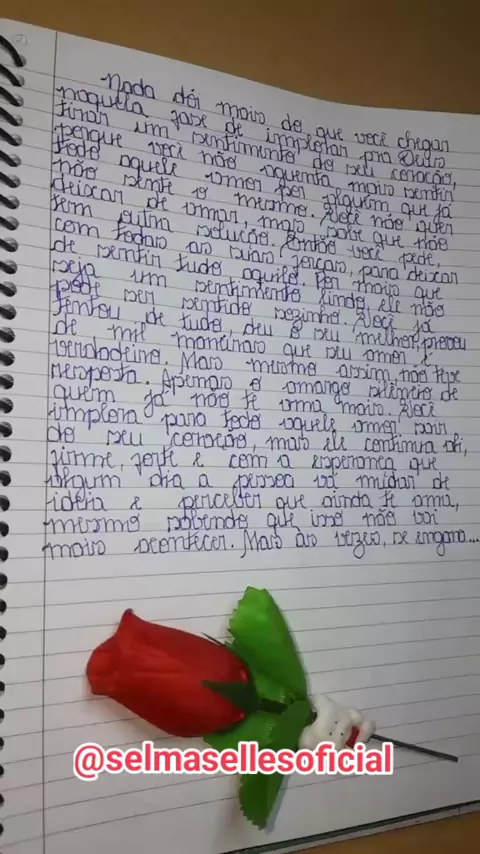 Nada dói mais do que você chegar
naquela fase de implorar pra Deus
tirar um sentimento do seu coração,
porque você não aguenta mais sentir
todo aquele amor por alguém que já
não sente o mesmo. Você não quer
deixar de amar, mais sabe que não
tem outra solução. Então você pede,
com todas as suas forças, para deixar
de sentir tudo aquilo. Por mais que
seja um sentimento lindo, ele não
pode ser sentido sozinho. Você já
tentou de tudo, deu o seu melhor, provou
de mil maneiras que seu amor é
verdadeiro. Mais mesmo assim, não teve
resposta. Apenas o amargo silêncio de
quem já não te ama mais. Você
implora para todo aquele amor sair
do seu coração, mais ele continua ali,
firme, forte e com a esperança que
algum dia a pessoa vá mudar de
idéia e perceber que ainda te ama,
mesmo sabendo que isso não vai
mais acontecer. Mais às vezes, se engana...
@selmasellesoficial